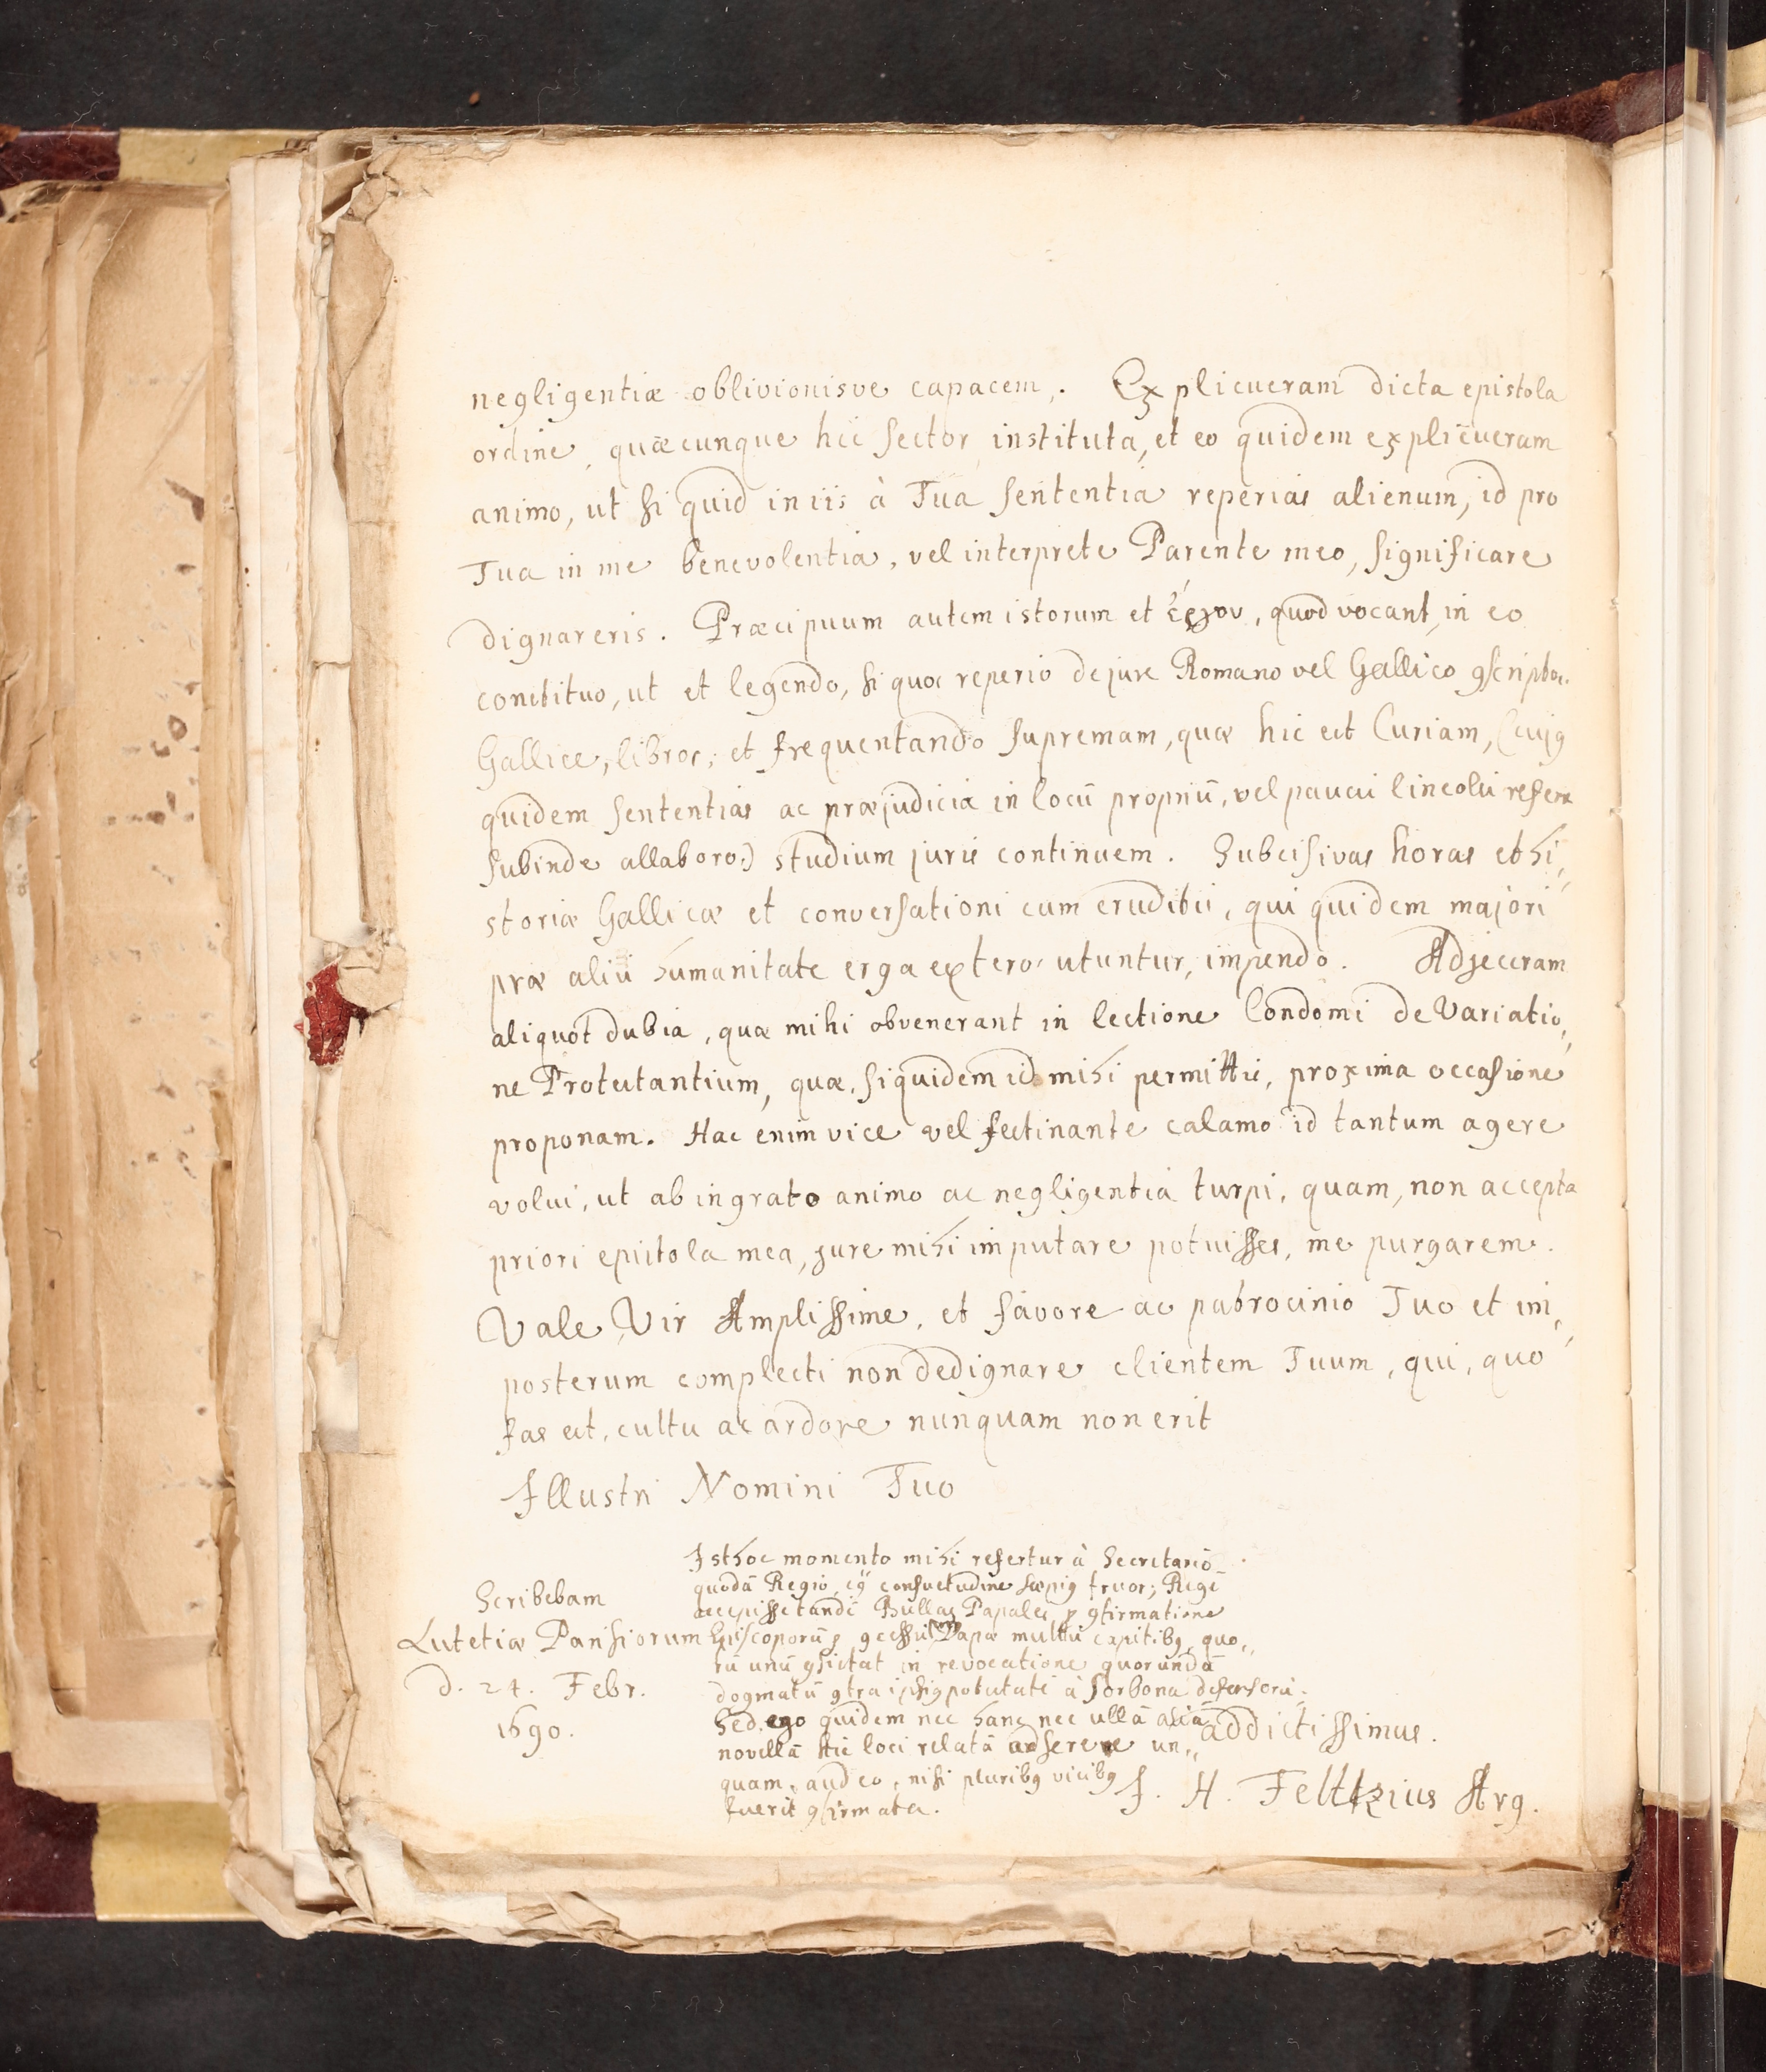 negligentiæ oblivionisve capacem. Explicueram dicta epistola
ordine, quæcunque hic sector instituta, et eo quidem explicueram
animo, ut si quid in iis à Tua sententia reperias alienum, id pro
Tua in me benevolentia, vel interprete Parente meo, significare
dignareris. Præcipuum autem istorum et ἔργον, quod vocant, in eo
constituo, ut et legendo, si quos reperio de jure Romano vel Gallico ꝯscriptos
Gallice, libros; et frequentando supremam, quæ hic est Curiam, (cujꝰ
quidem sententias ac præjudicia in locū propriū, vel paucis lineolis referre
subinde allaboro;) studium juris continuem. Subcisivas horas et hi,,
storiæ Gallicæ et conversationi cum eruditis, qui quidem majori
præ aliis humanitate erga exteros utuntur, impendo. Adjeceram
aliquot dubia, quæ mihi obvenerant in lectione Condomi de Variatio,,
ne Protestantium, quæ, siquidem id mihi permittis, proxima occasione
proponam. Hac enim vice vel festinante calamo id tantum agere
volui, ut ab ingrato animo ac negligentia turpi, quam, non accepta
priori epistola mea, jure mihi imputare potuisses, me purgarem.
Vale Vir Amplissime, et favore ac patrocinio Tuo et im,,
posterum complecti non dedignare clientem Tuum, qui, quo
fas est, cultu ac ardore nunquam non erit
Illustri Nomini Tuo
Isthoc momento mihi refertur à Secretario
quodā Regio, cujꝰ consuetudine sæpiꝰ fruor; Regē
accepisse tandē Bullas Papales ꝓ ꝯfirmatione
Episcoporū, ꝯcessis Papæ multis capitibꝰ, quo,,
rū unū ꝯsistat in revocatione quorundā
dogmatū ꝯtra ipsiꝰ potestatē à Sorbona defensorū.
Sed ego quidem nec hanc nec ullā aliā
novellā hic loci relatā adserere un,,
quam audeo, nisi pluribꝰ vicibꝰ
fuerit ꝯfirmata.
Scribebam
Lutetiæ Parisiorum
d. 24. Febr.
1690.
addictissimus.
J. H. Feltzius Arg.